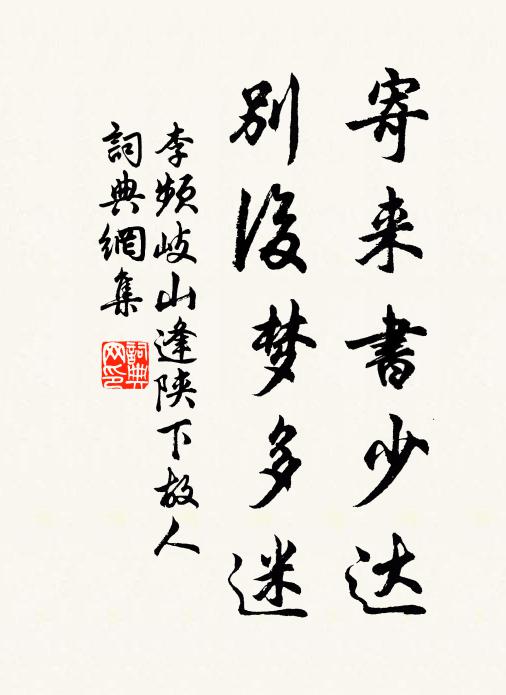 寄来書少达
別後梦多迷
李频岐山逢陕下故人
詞典網集
詞典网印